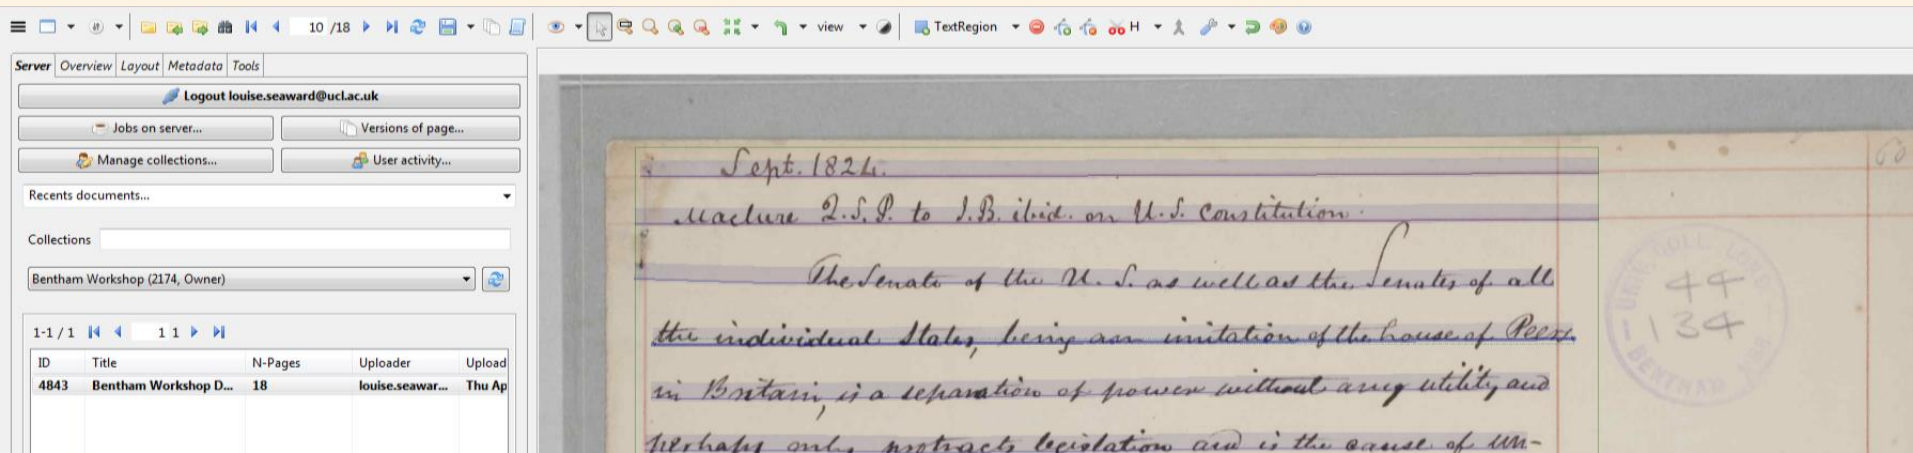 10 /18
view
TextRegion
H
Server Overview Layout Metadata Tools
Logout louise.seaward@ucl.ac.uk
Jobs on server...
Versions of page...
Manage collections...
User activity...
Recents documents...
Collections
Bentham Workshop (2174, Owner)
1-1 / 1
1 1
ID Title N-Pages Uploader Upload
4843 Bentham Workshop D... 18 louise.seawar... Thu Ap
Sept. 1824.
Maclure 2.S.P. to J.B. ibid. on U.S. Constitution.
The Senate of the U.S. as well as the Senates of all
the individual States, being an imitation of the house of Peers.
in Britain, is a separation of power without any utility, and
perhaps only protracts legislation and is the cause of un-
44
134
BENTHAM